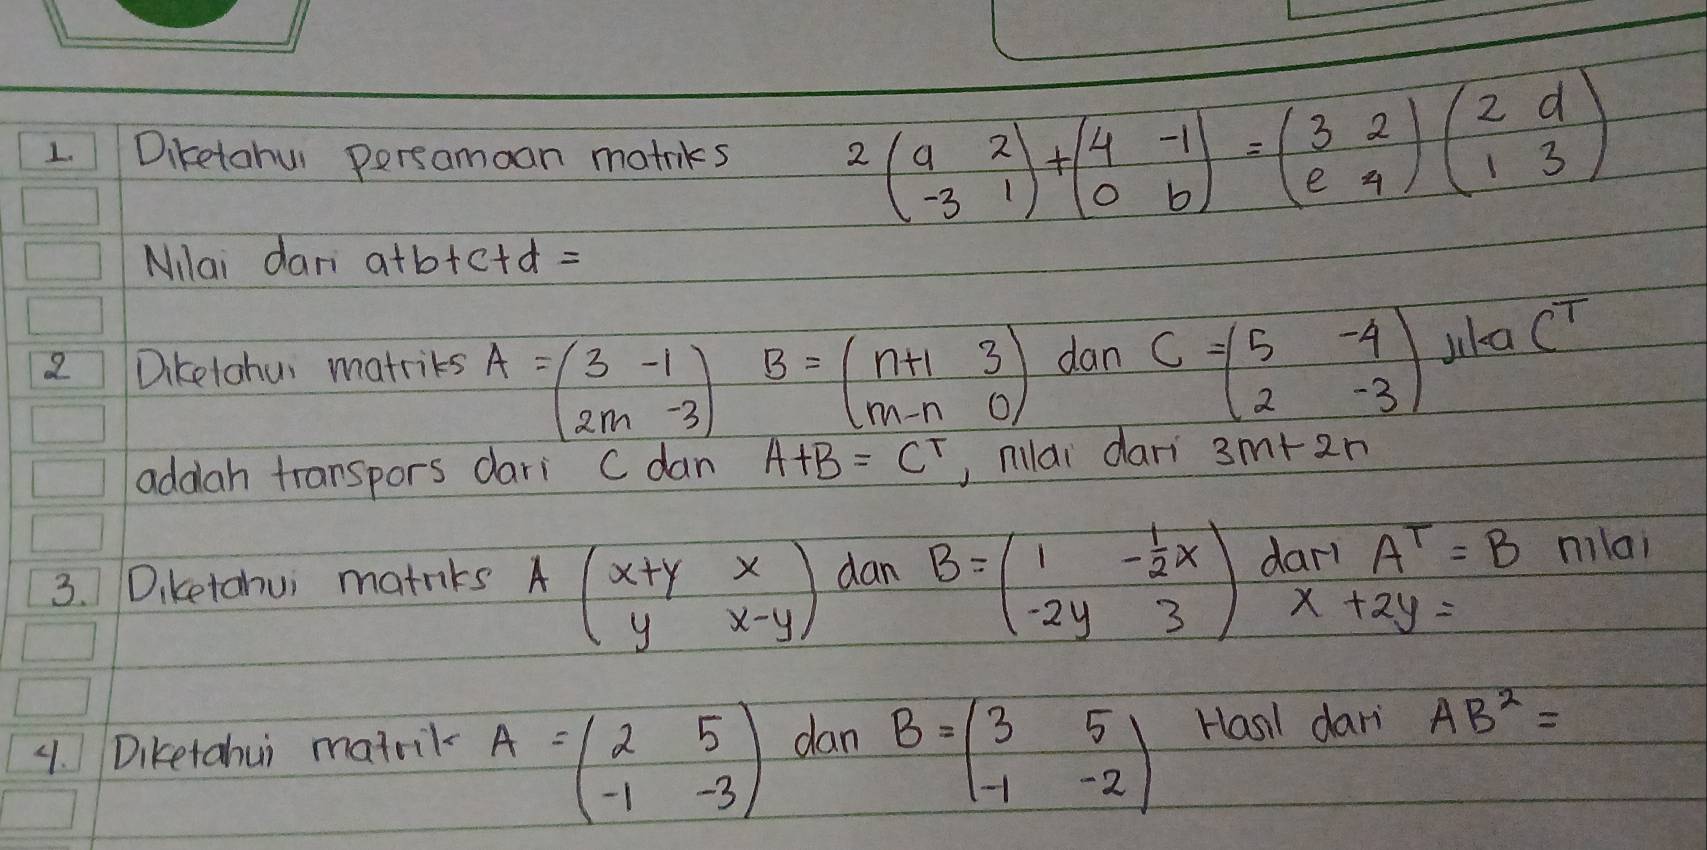 1. Diketahui persamaan matriks 2 (a 2) + (4 -1) = (3 2) (2 d)
(-3 1) (0 b) (e 4) (1 3)
Nilai dari a+b+c+d =
2 Diketahui matriks A = (3 -1) B = (n+1 3) dan C = (5 -4) jika Cᵀ
(2m -3) (m-n 0) (2 -3)
adalah transpors dari C dan A+B = Cᵀ, nilai dari 3m+2n
3. Diketahui matriks A (x+y x) dan B = (1 -½x) dari Aᵀ = B nilai
(y x-y) (-2y 3) x + 2y =
4. Diketahui matrik A = (2 5) dan B = (3 5) Hasil dari AB² =
(-1 -3) (-1 -2)